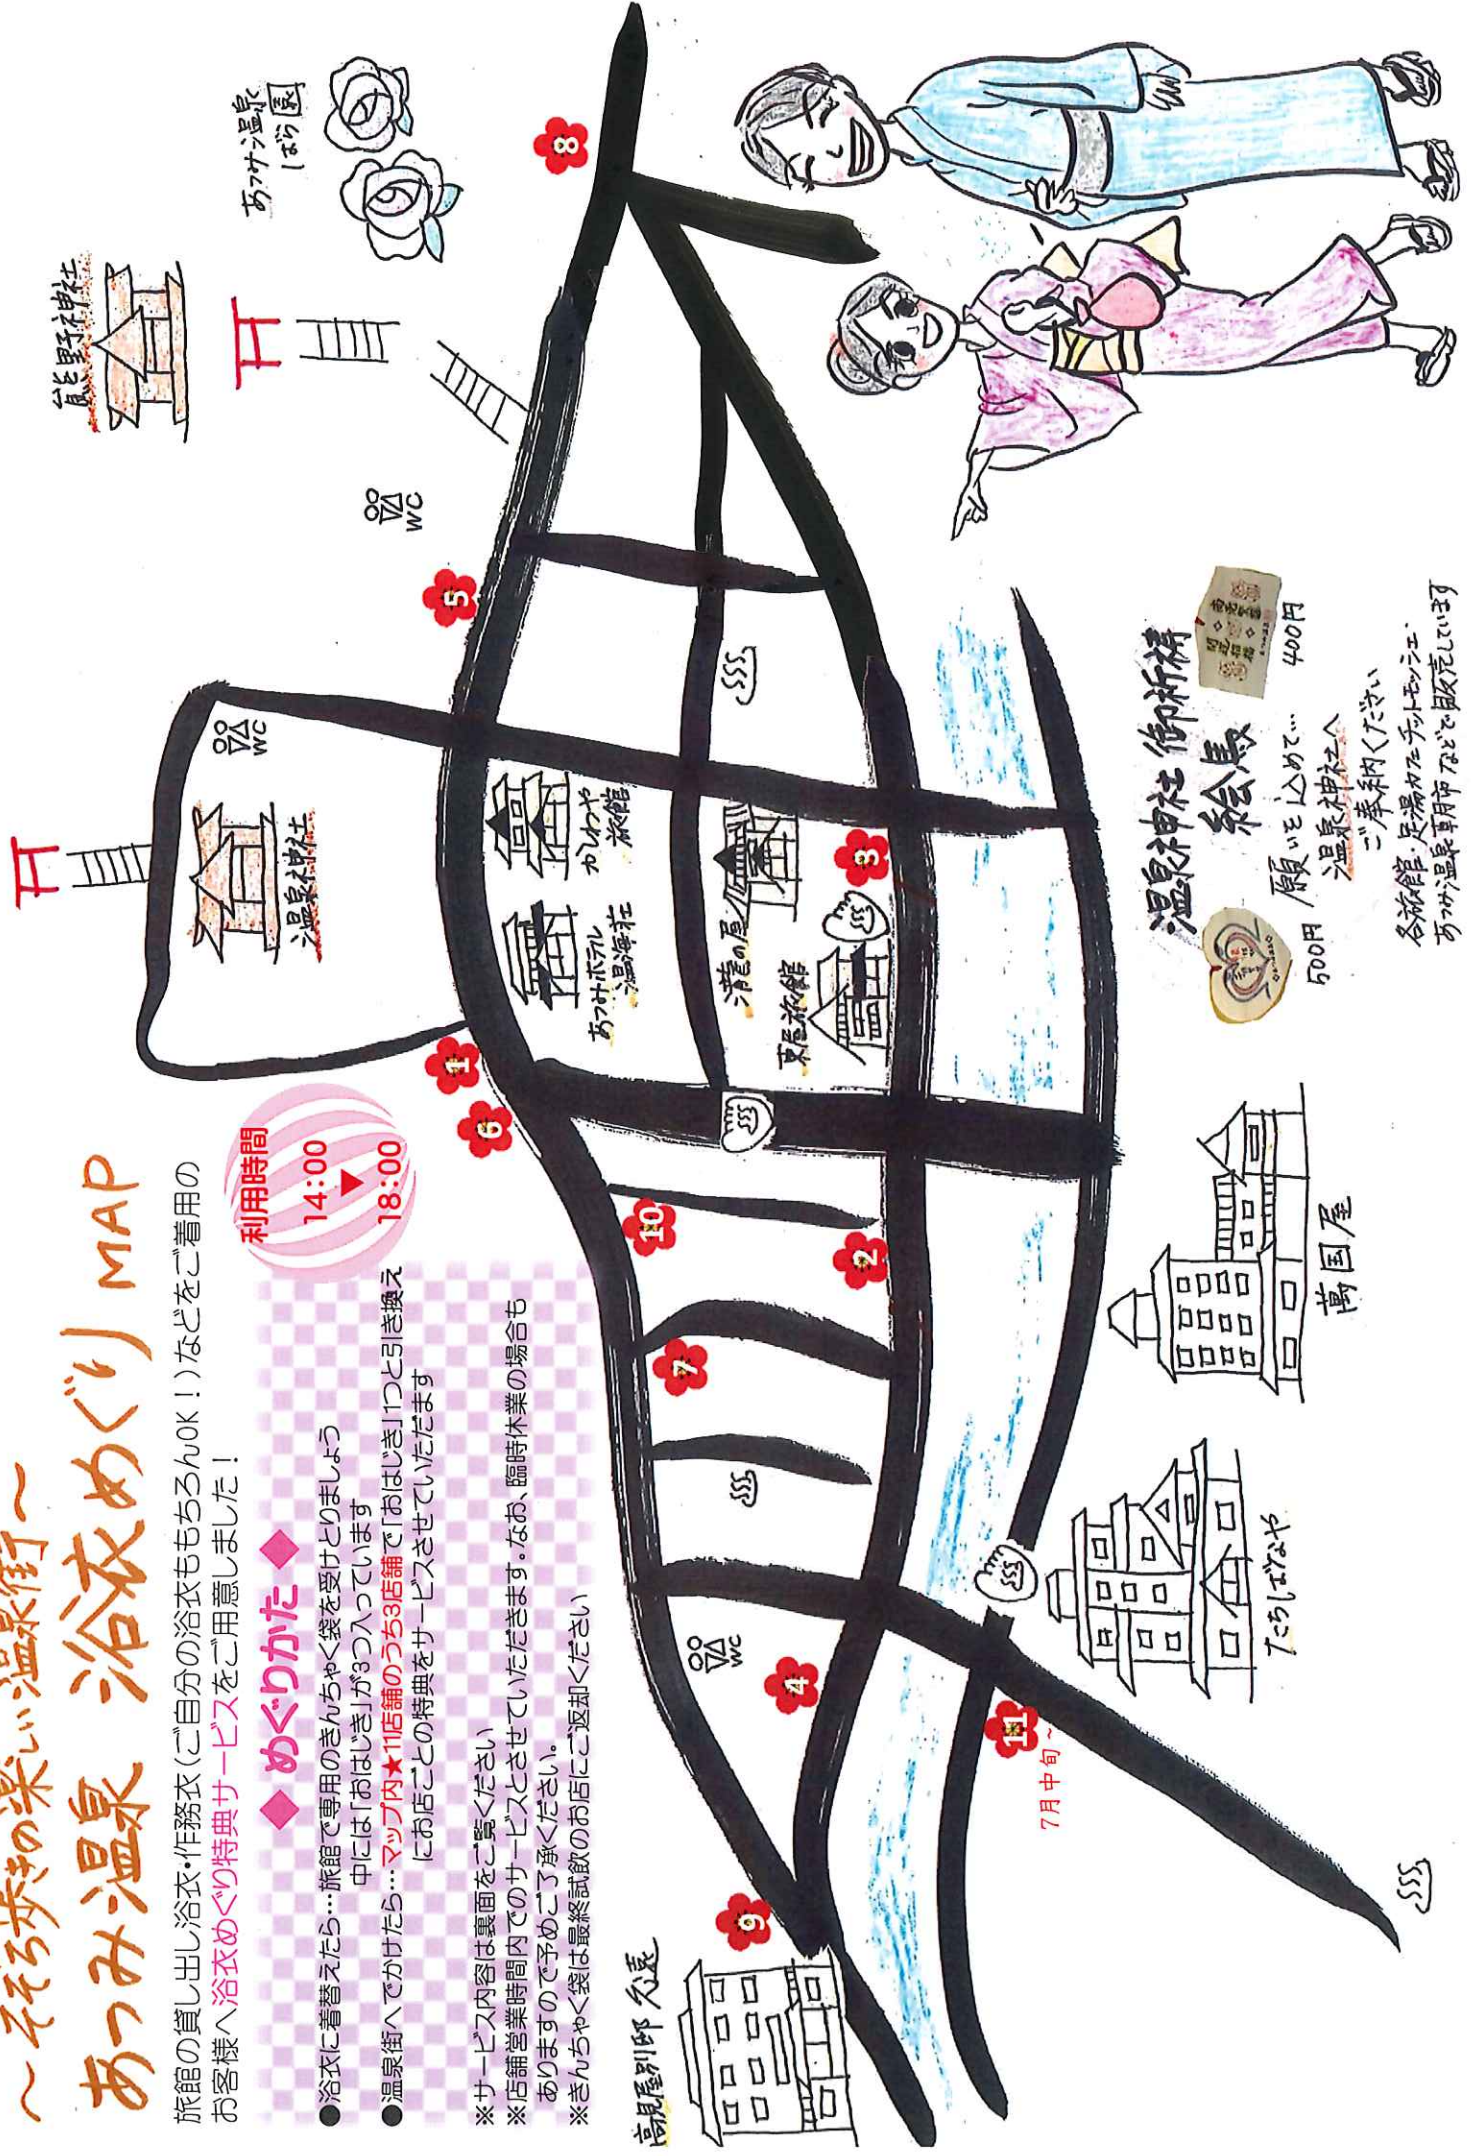 ～そぞろ歩きの楽しい温泉街～
あつみ温泉 浴衣めぐり MAP
旅館の貸し出し浴衣・作務衣(ご自分の浴衣ももちろんOK！)などをご着用の
お客様へ浴衣めぐり特典サービスをご用意しました！
◆めぐりかた◆
●浴衣に着替えたら…旅館で専用のきんちゃく袋を受けとりましょう
中には「おはじき」が3つ入っています
●温泉街へでかけたら…マップ内★11店舗のうち3店舗で「おはじき」1つと引き換え
にお店ごとの特典をサービスさせていただます
※サービス内容は裏面をご覧ください
※店舗営業時間内でのサービスとさせていただきます。なお、臨時休業の場合も
ありますので予めご了承ください。
※きんちゃく袋は最終試飲のお店にご返却ください
利用時間
14:00
▼
18:00
温泉神社
WC
熊野神社
あつみ温泉
ばら園
WC
8
5
1
6
10
2
7
3
4
9
11
7月中旬～
WC
かしわや
旅館
あつみホテル
温海荘
瀧の屋
東屋旅館
高見屋別邸 久遠
たちばなや
萬国屋
温泉神社御祈祷
絵馬
500円
400円
願いを込めて…
温泉神社へ
ご奉納ください
各旅館・足湯カフェチットモッシェ・
あつみ温泉朝市などで販売しています